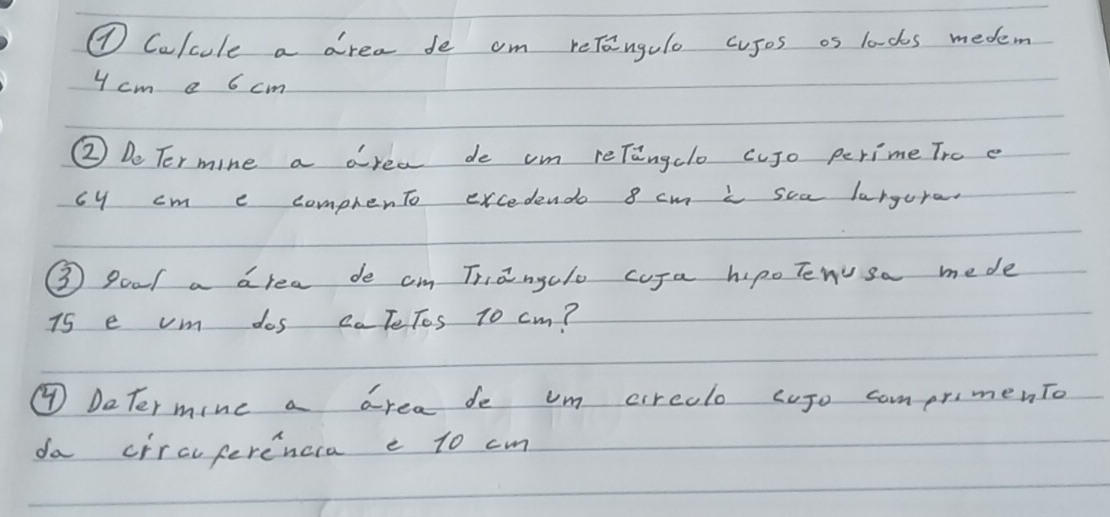 ① Calcule a área de um retângulo cujos os lados medem
4 cm e 6 cm
② Determine a área de um retângulo cujo perímetro e
64 cm e comprento excedendo 8 cm à sua largura
③ Qual a área de um Triângulo cuja hipotenusa mede
15 e um dos catetos 10 cm?
④ Determine a área de um circulo cujo comprimento
da circuferência e 10 cm